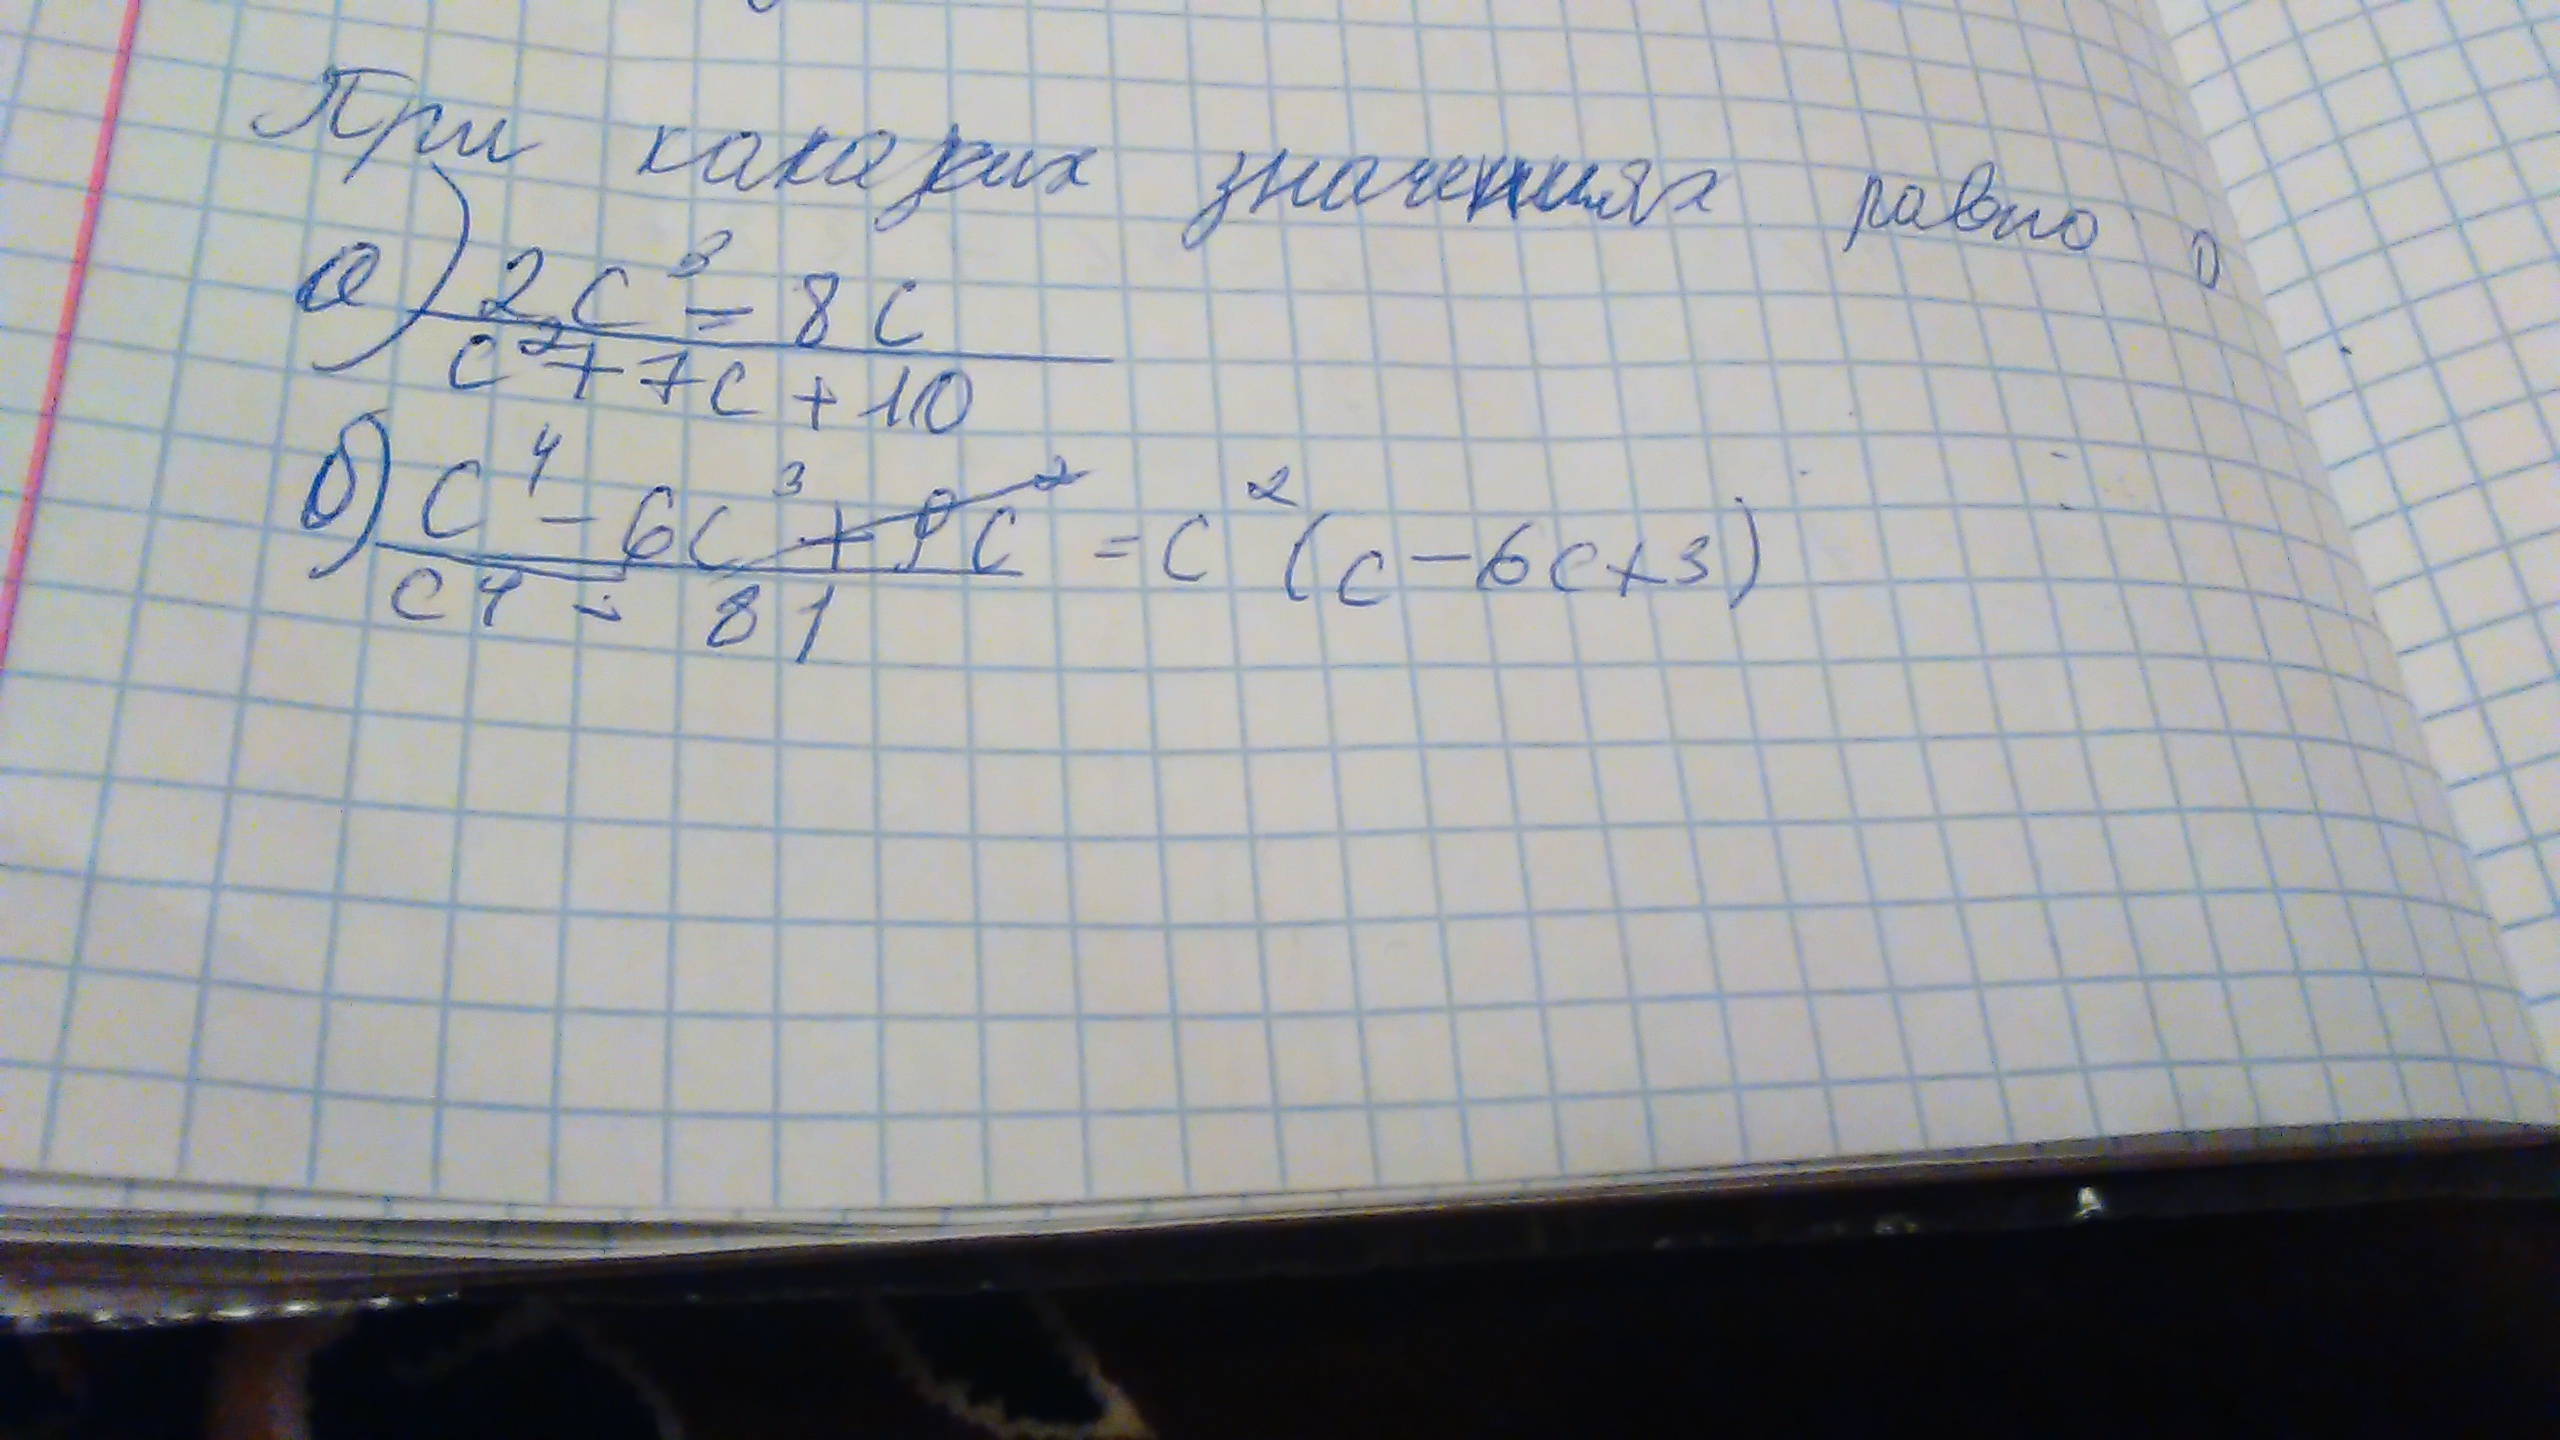 При каких значениях равно 0
а) 2c³ - 8c
c² + 7c + 10
б) c⁴ - 6c³ + 9c² = c² (c - 6c + 3)
c⁴ - 81